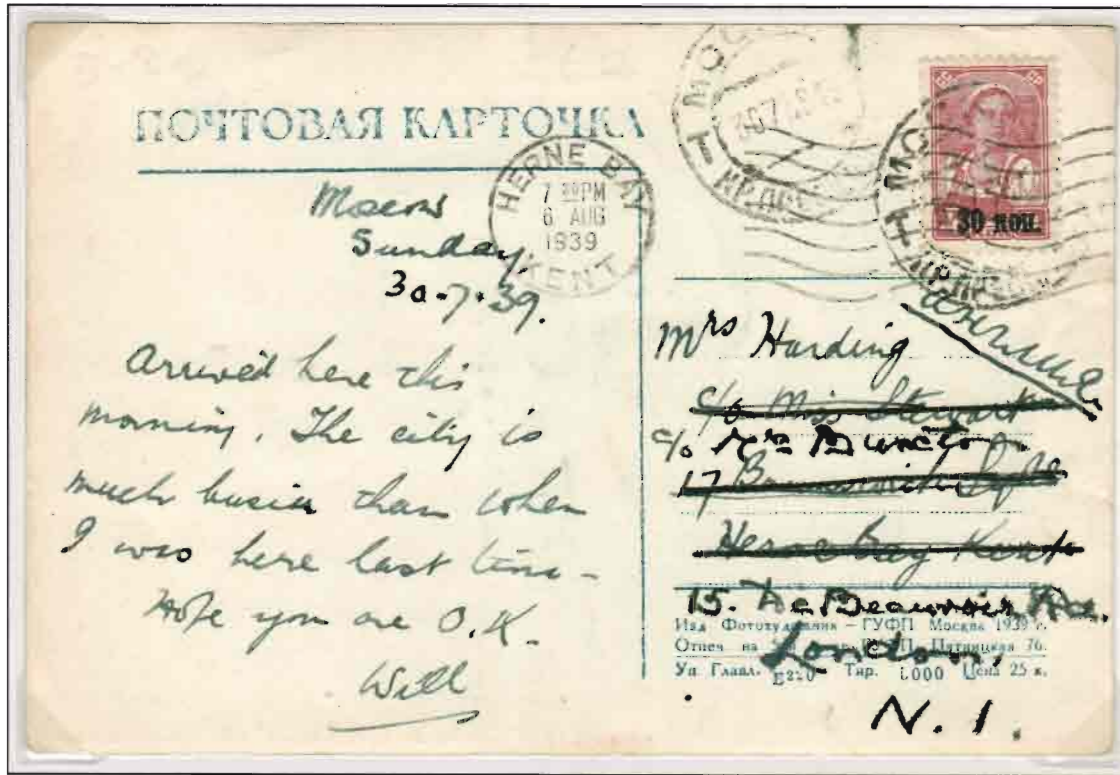 ПОЧТОВАЯ КАРТОЧКА
HERNE BAY
7 30PM
6 AUG
1939
KENT
30 коп.
Moscow
Sunday,
30-7-39.
Arrived here this
morning. The city is
much busier than when
I was here last time -
Hope you are O.K.
Will
Англия
Mrs Harding
c/o Miss Stewart
c/o Mrs
17 Brunswick
Herne Bay Kent
15. De Beauvoir
London,
N. 1.
Изд Фотохудожник – ГУФП Москва 1939 г.
Отпеч на Пятницкая 76.
Уп Главл. Тир. Цена 25 к.